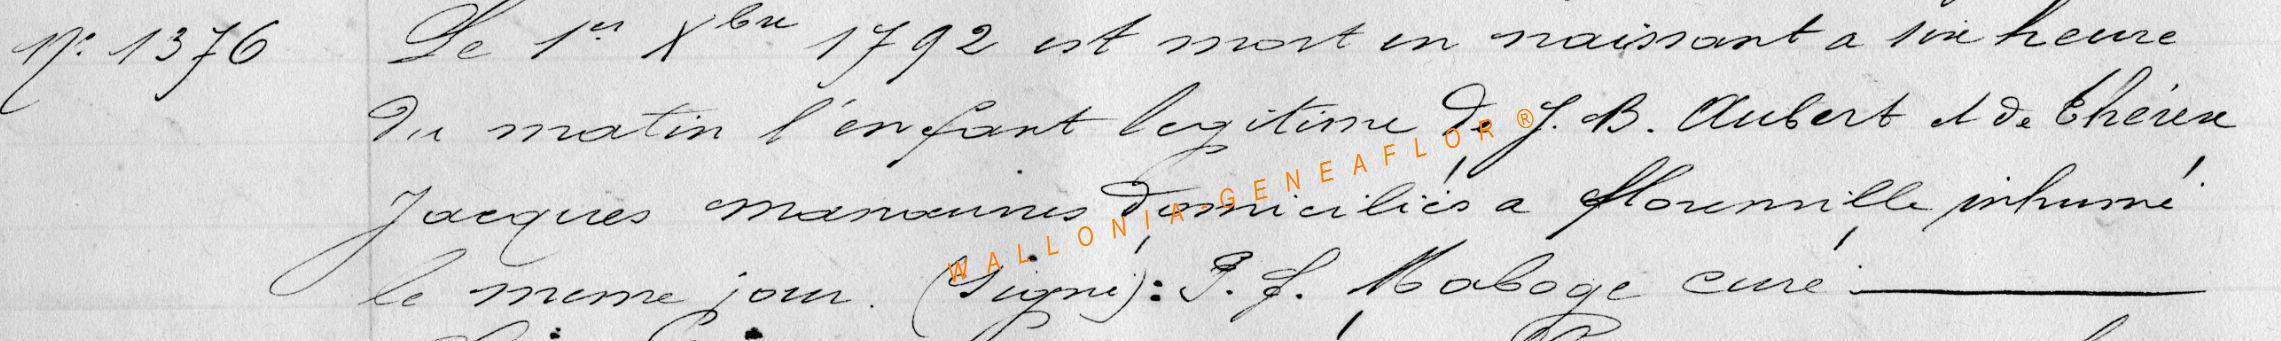 N° 1376 Le 1er Xbre 1792 est mort en naissant a six heure
du matin l'enfant legitime de J. B. Aubert et de thérèse
Jacques manœuvres domiciliés a florenville inhumé
le meme jour. (Signé): P. J. Maboge curé
WALLONIA-GENEAFLOR®